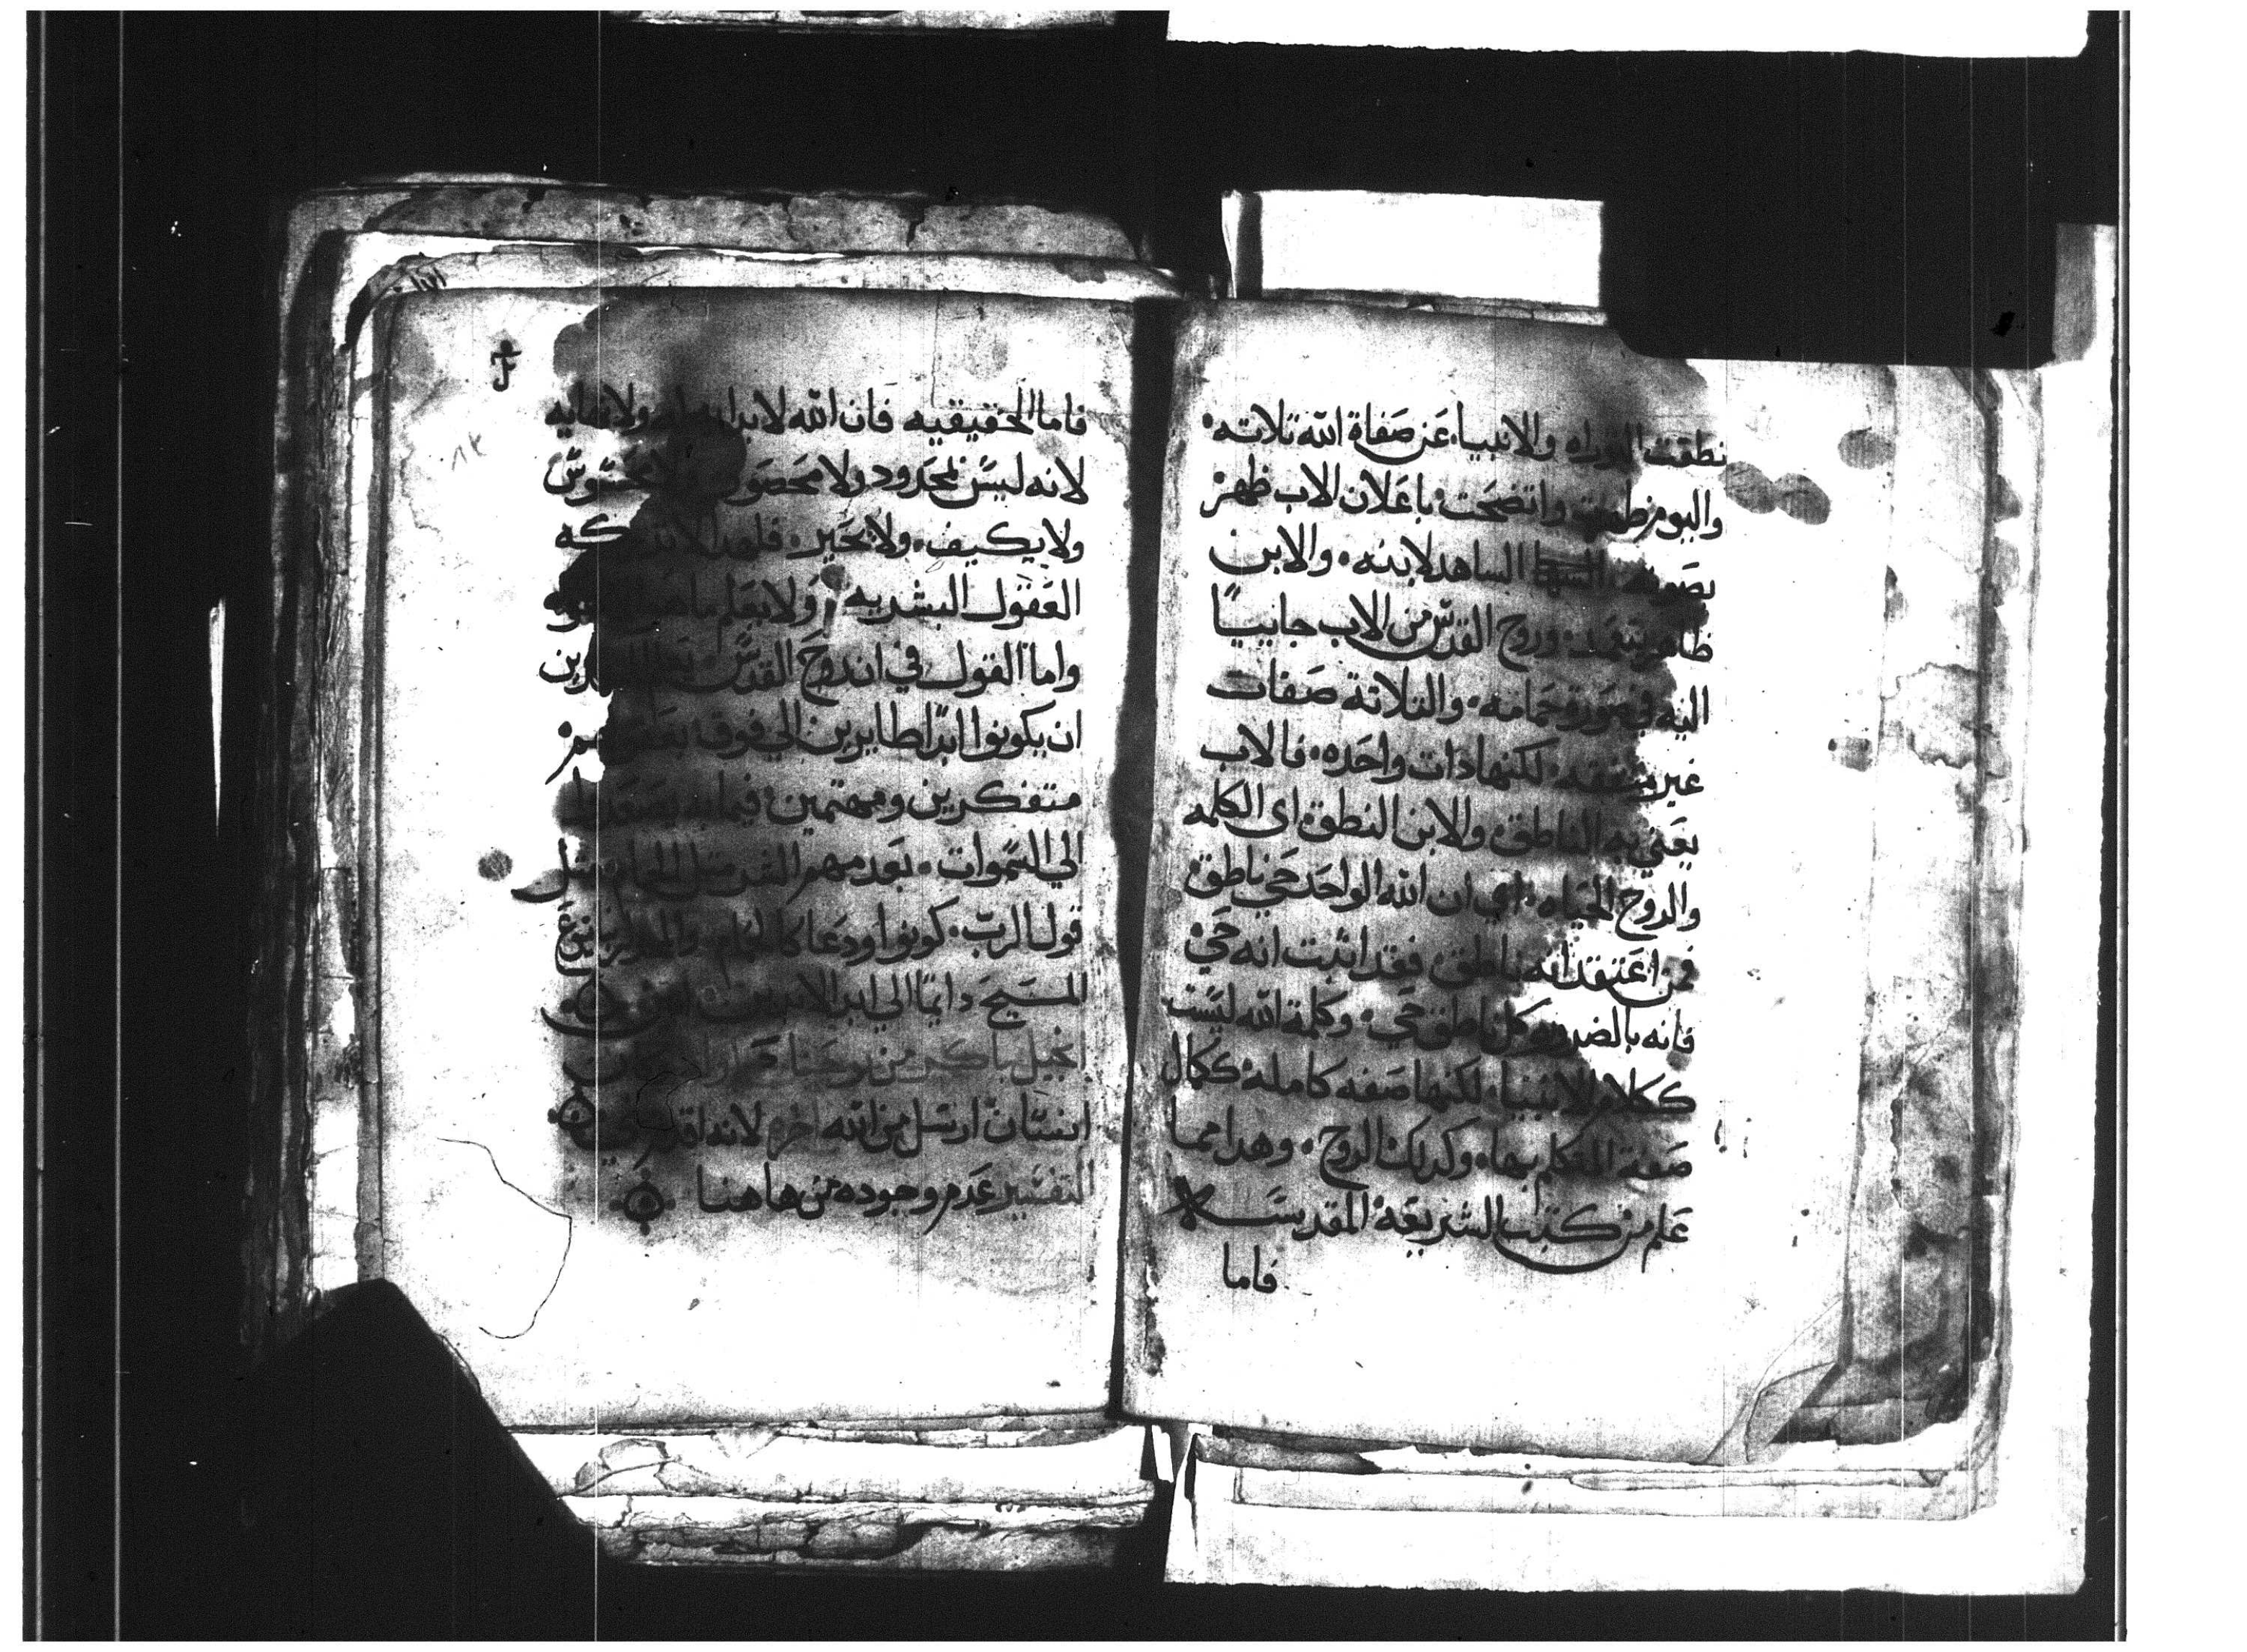 نطقت التوراه والانبياء عن صفاة الله تلاته
واليوم ظهرت واتضحت باعلان الاب ظهر
بصوته الساهد لابنه والابن
ظاهر يتعمد وروح القدس من الاب جاييًا
اليه في صورة حمامه والتلاتة صفات
غير لكنها دات واحده فالاب
يعني به الناطق والابن النطق اي الكلمه
والروح الحياه اي ان الله الواحد حي ناطق
فمن اعتقد انه ناطق فقد اثبت انه حي
فانه بالضروره كل ناطق حي وكلمة الله ليست
ككلام الانبياء لكنها صفه كامله ككمال
صفة المتكلم بها وكدلك الروح وهدا مما
علم من كتب الشريعة المقدسه
فاما
فاما الحقيقيه فان الله لا بدايه له ولا نهايه
لانه ليس بمحدود ولا محصور ولا محسوس
ولا يكيف ولا يحير فلهدا لا تدركه
العقول البشريه ولا يعلم ما هو
واما القول في ان روح القدس
ان يكونوا ابدًا طايرين الي فوق
متفكرين ومهتمين فيما به يصعدوا
الي السموات بعد مهم الشر مثل الحمام مثل
قول الرب كونوا ودعا كالحمام
المسيح دايمًا الي ابد الابدين امين
انجيل باكر من يوحنا
انسان ارسل من الله اخره لانه اقدم مني
التفسير عدم وجوده من هاهنا